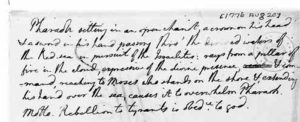 [1776 Aug 20]
Pharaoh sitting in an open chariot, a crown on his head
& a sword in his hand passing thro' the divided waters of
the Red sea in pursuit of the Israelites: rays from a pillar of
fire in the cloud, expressive of the divine presence & com-
mand, reaching to Moses who stands on the shore & extending
his hand over the sea causes it to overwhelm Pharaoh.
Motto. Rebellion to tyrants is to god.